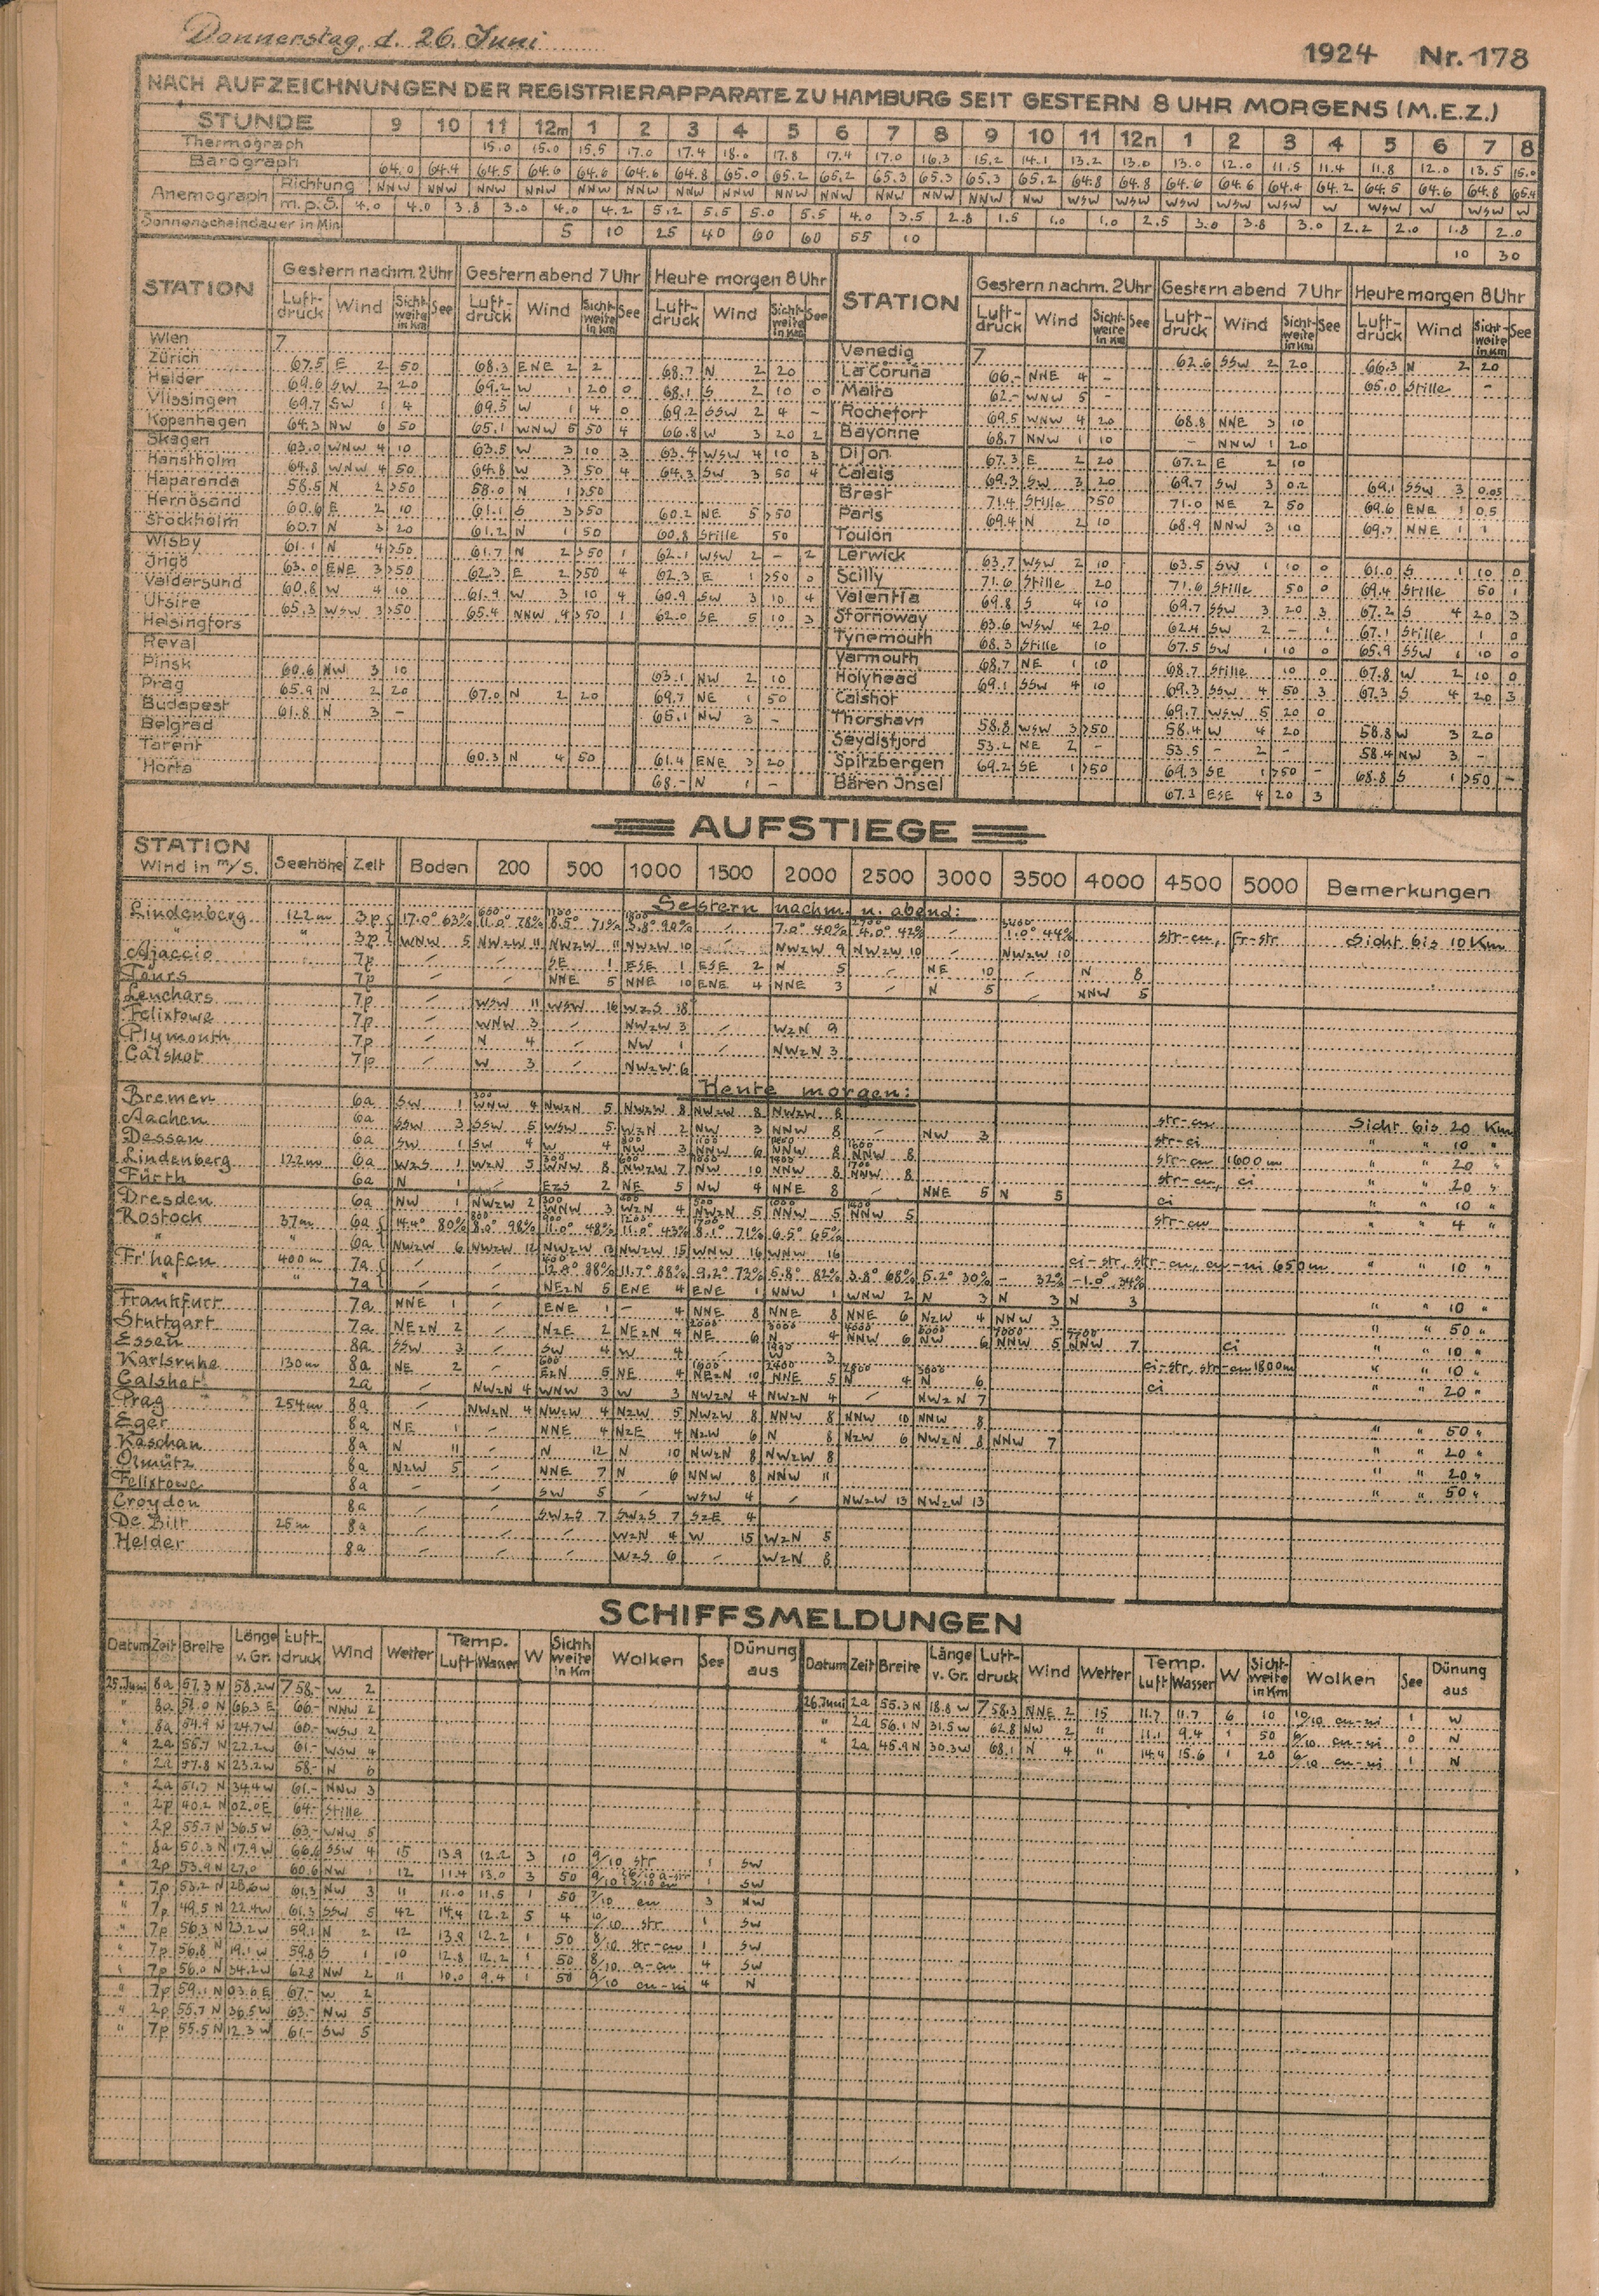 Donnerstag, d. 26. Juni 1924 Nr. 178
NACH AUFZEICHNUNGEN DER REGISTRIERAPPARATE ZU HAMBURG SEIT GESTERN 8 UHR MORGENS (M.E.Z.)
STUNDE 9 10 11 12m 1 2 3 4 5 6 7 8 9 10 11 12n 1 2 3 4 5 6 7 8
Thermograph 15.0 15.0 15.5 17.0 17.4 18.0 17.8 17.4 17.0 16.3 15.2 14.1 13.2 13.0 13.0 12.0 11.5 11.4 11.8 12.0 13.5 15.0
Barograph 64.0 64.4 64.5 64.6 64.6 64.6 64.8 65.0 65.2 65.2 65.3 65.3 65.3 65.2 64.8 64.8 64.6 64.6 64.4 64.2 64.5 64.6 64.8 65.4
Anemograph Richtung NNW NNW NNW NNW NNW NNW NNW NNW NNW NNW NNW NNW NNW NW WSW WSW WSW WSW WSW W WSW W WSW W
m.p.S. 4.0 4.0 3.8 3.0 4.0 4.2 5.2 5.5 5.0 5.5 4.0 3.5 2.8 1.5 1.0 1.0 2.5 3.0 3.8 3.0 2.2 2.0 1.8 2.0
Sonnenscheindauer in Min 5 10 25 40 60 60 55 10 10 30
STATION Gestern nachm. 2 Uhr Gestern abend 7 Uhr Heute morgen 8 Uhr STATION Gestern nachm. 2 Uhr Gestern abend 7 Uhr Heute morgen 8 Uhr
Luft-druck Wind Sicht-weite in Km See Luft-druck Wind Sicht-weite in Km See Luft-druck Wind Sicht-weite in Km See Luft-druck Wind Sicht-weite in Km See Luft-druck Wind Sicht-weite in Km See Luft-druck Wind Sicht-weite in Km See
Wien 7
Zürich 67.5 E 2 50 68.3 ENE 2 2 68.7 N 2 20
Helder 69.6 SW 2 20 69.2 W 1 20 0 68.1 S 2 10 0
Vlissingen 69.7 SW 1 4 69.5 W 1 4 0 69.2 SSW 2 4 -
Kopenhagen 64.3 NW 6 50 65.1 WNW 5 50 4 66.8 W 3 20 2
Skagen 63.0 WNW 4 10 63.5 W 3 10 3 63.4 WSW 4 10 3
Hanstholm 64.8 WNW 4 50 64.8 W 3 50 4 64.3 SW 3 50 4
Haparanda 58.5 N 2 >50 58.0 N 1 >50
Hernösand 60.6 E 2 10 61.1 S 3 >50 60.2 NE 5 >50
Stockholm 60.7 N 3 20 61.2 N 1 50 60.8 Stille 50
Wisby 61.1 N 4 >50 61.7 N 2 >50 1 62.1 WSW 2 - 2
Ingö 63.0 ENE 3 >50 62.3 E 2 >50 4 62.3 E 1 >50 0
Valdersund 60.8 W 4 10 61.9 W 3 10 4 60.9 SW 3 10 4
Utsire 65.3 WSW 3 >50 65.4 NNW 4 >50 1 62.0 SE 5 10 3
Helsingfors
Reval
Pinsk 60.6 NW 3 10 63.1 NW 2 10
Prag 65.9 N 2 20 67.0 N 2 20 69.7 NE 1 50
Budapest 61.8 N 3 - 65.1 NW 3 -
Belgrad
Tarent 60.3 N 4 50 61.4 ENE 3 20
Horta 68.- N 1 -
Venedig 7 62.6 SSW 2 20 66.3 N 2 20
La Coruña 66.- NNE 4 - 65.0 Stille -
Malta 62.- WNW 5 -
Rochefort 69.5 WNW 4 20 68.8 NNE 3 10
Bayonne 68.7 NNW 1 10 - NNW 1 20
Dijon 67.3 E 2 20 67.2 E 2 10
Calais 69.3 SW 3 20 69.7 SW 3 0.2 69.1 SSW 3 0.05
Brest 71.4 Stille >50 71.0 NE 2 50 69.6 ENE 1 0.5
Paris 69.4 N 2 10 68.9 NNW 3 10 69.7 NNE 1 1
Toulon
Lerwick 63.7 WSW 2 10 63.5 SW 1 10 0 61.0 S 1 10 0
Scilly 71.6 Stille 20 71.6 Stille 50 0 69.4 Stille 50 1
Valentia 69.8 S 4 10 69.7 SSW 3 20 3 67.2 S 4 20 3
Stornoway 63.6 WSW 4 20 62.4 SW 2 - 1 67.1 Stille 1 0
Tynemouth 68.3 Stille 10 67.5 SW 1 10 0 65.9 SSW 1 10 0
Yarmouth 68.7 NE 1 10 68.7 Stille 10 0 67.8 W 2 10 0
Holyhead 69.1 SSW 4 10 69.3 SSW 4 50 3 67.3 S 4 20 3
Calshot 69.7 WSW 5 20 0
Thorshavn 58.8 WSW 3 >50 58.4 W 4 20 58.8 W 3 20
Seydisfjord 53.2 NE 2 - 53.5 - 2 - 58.4 NW 3 -
Spitzbergen 69.2 SE 1 >50 69.3 SE 1 >50 - 68.8 S 1 >50 -
Bären Jnsel 67.3 ESE 4 20 3
AUFSTIEGE
STATION Wind in m/s. Seehöhe Zeit Boden 200 500 1000 1500 2000 2500 3000 3500 4000 4500 5000 Bemerkungen
Gestern nachm. u. abend:
Lindenberg 122m 3p 17.0° 63% 11.0° 78% 8.5° 71% 5.8° 90% 7.0° 40% 4.0° 42% 1.0° 44%
" " 3p WNW 5 NWzW 11 NWzW 11 NWzW 10 NWzW 9 NWzW 10 NWzW 10 str-cu, fr-str Sicht bis 10 Km
Ajaccio 7p SE 1 ESE 1 ESE 2 N 5 NE 10 N 8
Tours 7p NNE 5 NNE 10 ENE 4 NNE 3 N 5 NNW 5
Leuchars 7p WSW 11 WSW 16 WzS 18
Felixtowe 7p WNW 3 NWzW 3 WzN 9
Plymouth 7p N 4 NW 1 NWzN 3
Calshot 7p W 3 NWzW 6
Heute morgen:
Bremen 6a SW 1 WNW 4 NWzN 5 NWzW 8 NWzW 8 NWzW 8 str-cu Sicht bis 20 Km
Aachen 6a SSW 3 SSW 5 WSW 5 WzN 2 NW 3 NNW 8 NW 3 str-ci " " 10 "
Dessau 6a SW 1 SW 4 W 4 NW 3 NNW 6 NNW 8 NNW 8 str-cu 1600m " " 20 "
Lindenberg 122m 6a WzS 1 WzN 5 WNW 8 NWzW 7 NW 10 NNW 8 NNW 8 str-cu, ci " " 20 "
Fürth 6a N 1 EzS 2 NE 5 NW 4 NNE 8 NNE 5 N 5 ci " " 10 "
Dresden 6a NW 1 NWzW 2 WNW 3 WzN 4 NWzN 5 NNW 5 NNW 5 str-cu " " 4 "
Rostock 37m 6a 14.4° 80% 8.0° 98% 11.0° 48% 11.0° 43% 8.1° 71% 6.5° 65%
" " 6a NWzW 6 NWzW 12 NWzW 13 NWzW 15 WNW 16 WNW 16 ci-str, str-cu, cu-ni 650m " " 10 "
Fr'hafen 400m 7a 12.8° 88% 11.7° 88% 9.2° 72% 5.8° 82% 3.8° 68% 5.2° 30% - 32% -1.0° 34%
" " 7a NEzN 5 ENE 4 ENE 1 NNW 1 WNW 2 N 3 N 3 N 3 " " 10 "
Frankfurt 7a NNE 1 ENE 1 - 4 NNE 8 NNE 8 NNE 6 NzW 4 NNW 3 " " 50 "
Stuttgart 7a NEzN 2 NzE 2 NEzN 4 NE 6 N 4 NNW 6 NW 6 NNW 5 NNW 7 ci " " 10 "
Essen 8a SSW 3 SW 4 W 4 W 3 ci-str, str-cu 1800m " " 10 "
Karlsruhe 130m 8a NE 2 EzN 5 NE 4 NEzN 10 NNE 5 N 4 N 6 ci " " 20 "
Calshot 2a NWzN 4 WNW 3 W 3 NWzN 4 NWzN 4 NWzN 7
Prag 254m 8a NWzN 4 NWzW 4 NzW 5 NWzW 8 NNW 8 NNW 10 NNW 8 " " 50 "
Eger 8a NE 1 NNE 4 NzE 4 NzW 6 N 8 NzW 6 NWzN 8 NNW 7 " " 20 "
Kaschau 8a N 11 N 12 N 10 NWzN 8 NWzW 8 " " 20 "
Olmütz 8a NzW 5 NNE 7 N 6 NNW 8 NNW 11 " " 50 "
Felixtowe 8a SW 5 WSW 4 NWzW 13 NWzW 13
Croydon 8a SWzS 7 SWzS 7 SzE 4
De Bilt 25m 8a WzN 4 W 15 WzN 5
Helder 8a WzS 6 WzN 8
SCHIFFSMELDUNGEN
Datum Zeit Breite Länge v. Gr. Luft-druck Wind Wetter Temp. Luft Wasser W Sicht weite in Km Wolken See Dünung aus Datum Zeit Breite Länge v. Gr. Luft-druck Wind Wetter Temp. Luft Wasser W Sicht-weite in Km Wolken See Dünung aus
25.Juni 8a 57.3 N 58.2 W 758.- W 2
" 8a 51.0 N 66.3 E 66.- NNW 2
" 8a 54.9 N 24.7 W 60.- WSW 2
" 2a 55.7 N 22.2 W 61.- WSW 4
" 2a 57.8 N 23.2 W 58.- N 6
" 2a 51.7 N 34.4 W 61.- NNW 3
" 2p 40.2 N 02.0 E 64.- Stille
" 2p 55.7 N 36.5 W 63.- WNW 5
" 8a 50.3 N 17.9 W 66.6 SSW 4 15 13.9 12.2 3 10 9/10 str 1 SW
" 2p 53.9 N 27.0 60.6 NW 1 12 11.4 13.0 3 50 9/10 1 SW
" 7p 53.2 N 28.6 W 61.3 NW 3 11 11.0 11.5 1 50 7/10 cu 3 NW
" 7p 49.5 N 22.4 W 61.3 SSW 5 42 14.4 12.2 5 4 10/10 str 1 SW
" 7p 56.3 N 23.2 W 59.1 N 2 12 13.9 12.2 1 50 8/10 str-cu 1 SW
" 7p 56.8 N 19.1 W 59.8 S 1 10 12.8 12.2 1 50 8/10 a-cu 4 SW
" 7p 56.0 N 34.2 W 62.8 NW 2 11 10.0 9.4 1 50 9/10 cu-ni 4 N
" 7p 59.1 N 03.6 E 67.- W 2
" 2p 55.7 N 36.5 W 63.- NW 5
" 7p 55.5 N 12.3 W 61.- SW 5
26.Juni 2a 55.3 N 18.8 W 758.3 NNE 2 15 11.7 11.7 6 10 10/10 cu-ni 1 W
" 2a 56.1 N 31.5 W 62.8 NW 2 " 11.1 9.4 1 50 6/10 cu-ni 0 N
" 2a 45.9 N 30.3 W 68.1 N 4 " 14.4 15.6 1 20 6/10 cu-ni 1 N